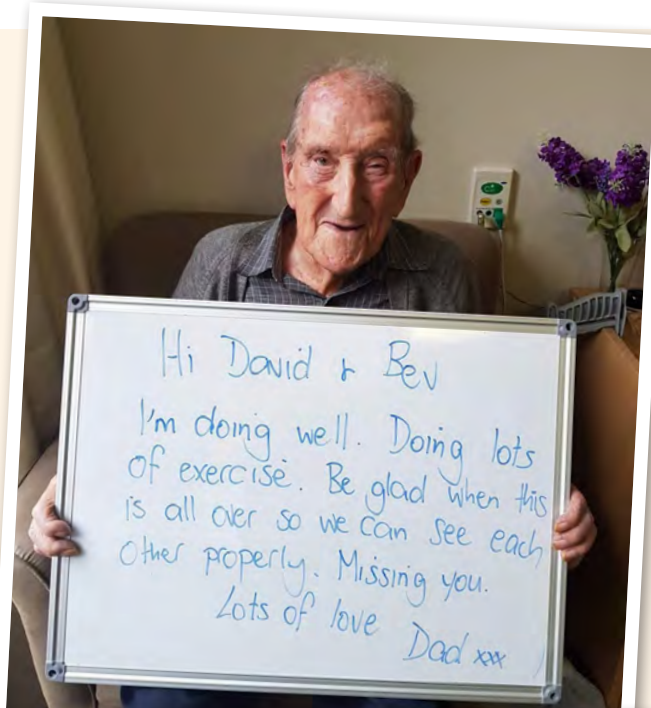 Hi David & Bev
I'm doing well. Doing lots
of exercise. Be glad when this
is all over so we can see each
other properly. Missing you.
Lots of love
Dad xxx